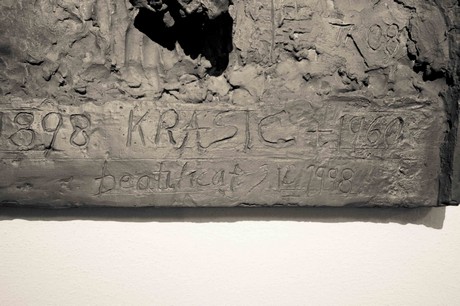 1898 KRASIC +1960
beatificat 1998